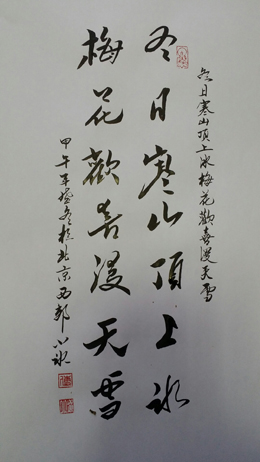 冬日寒山顶上冰梅花歡喜漫天雪
冬日寒山頂上冰
梅花歡喜漫天雪
甲午年盛冬於北京西郊小冰